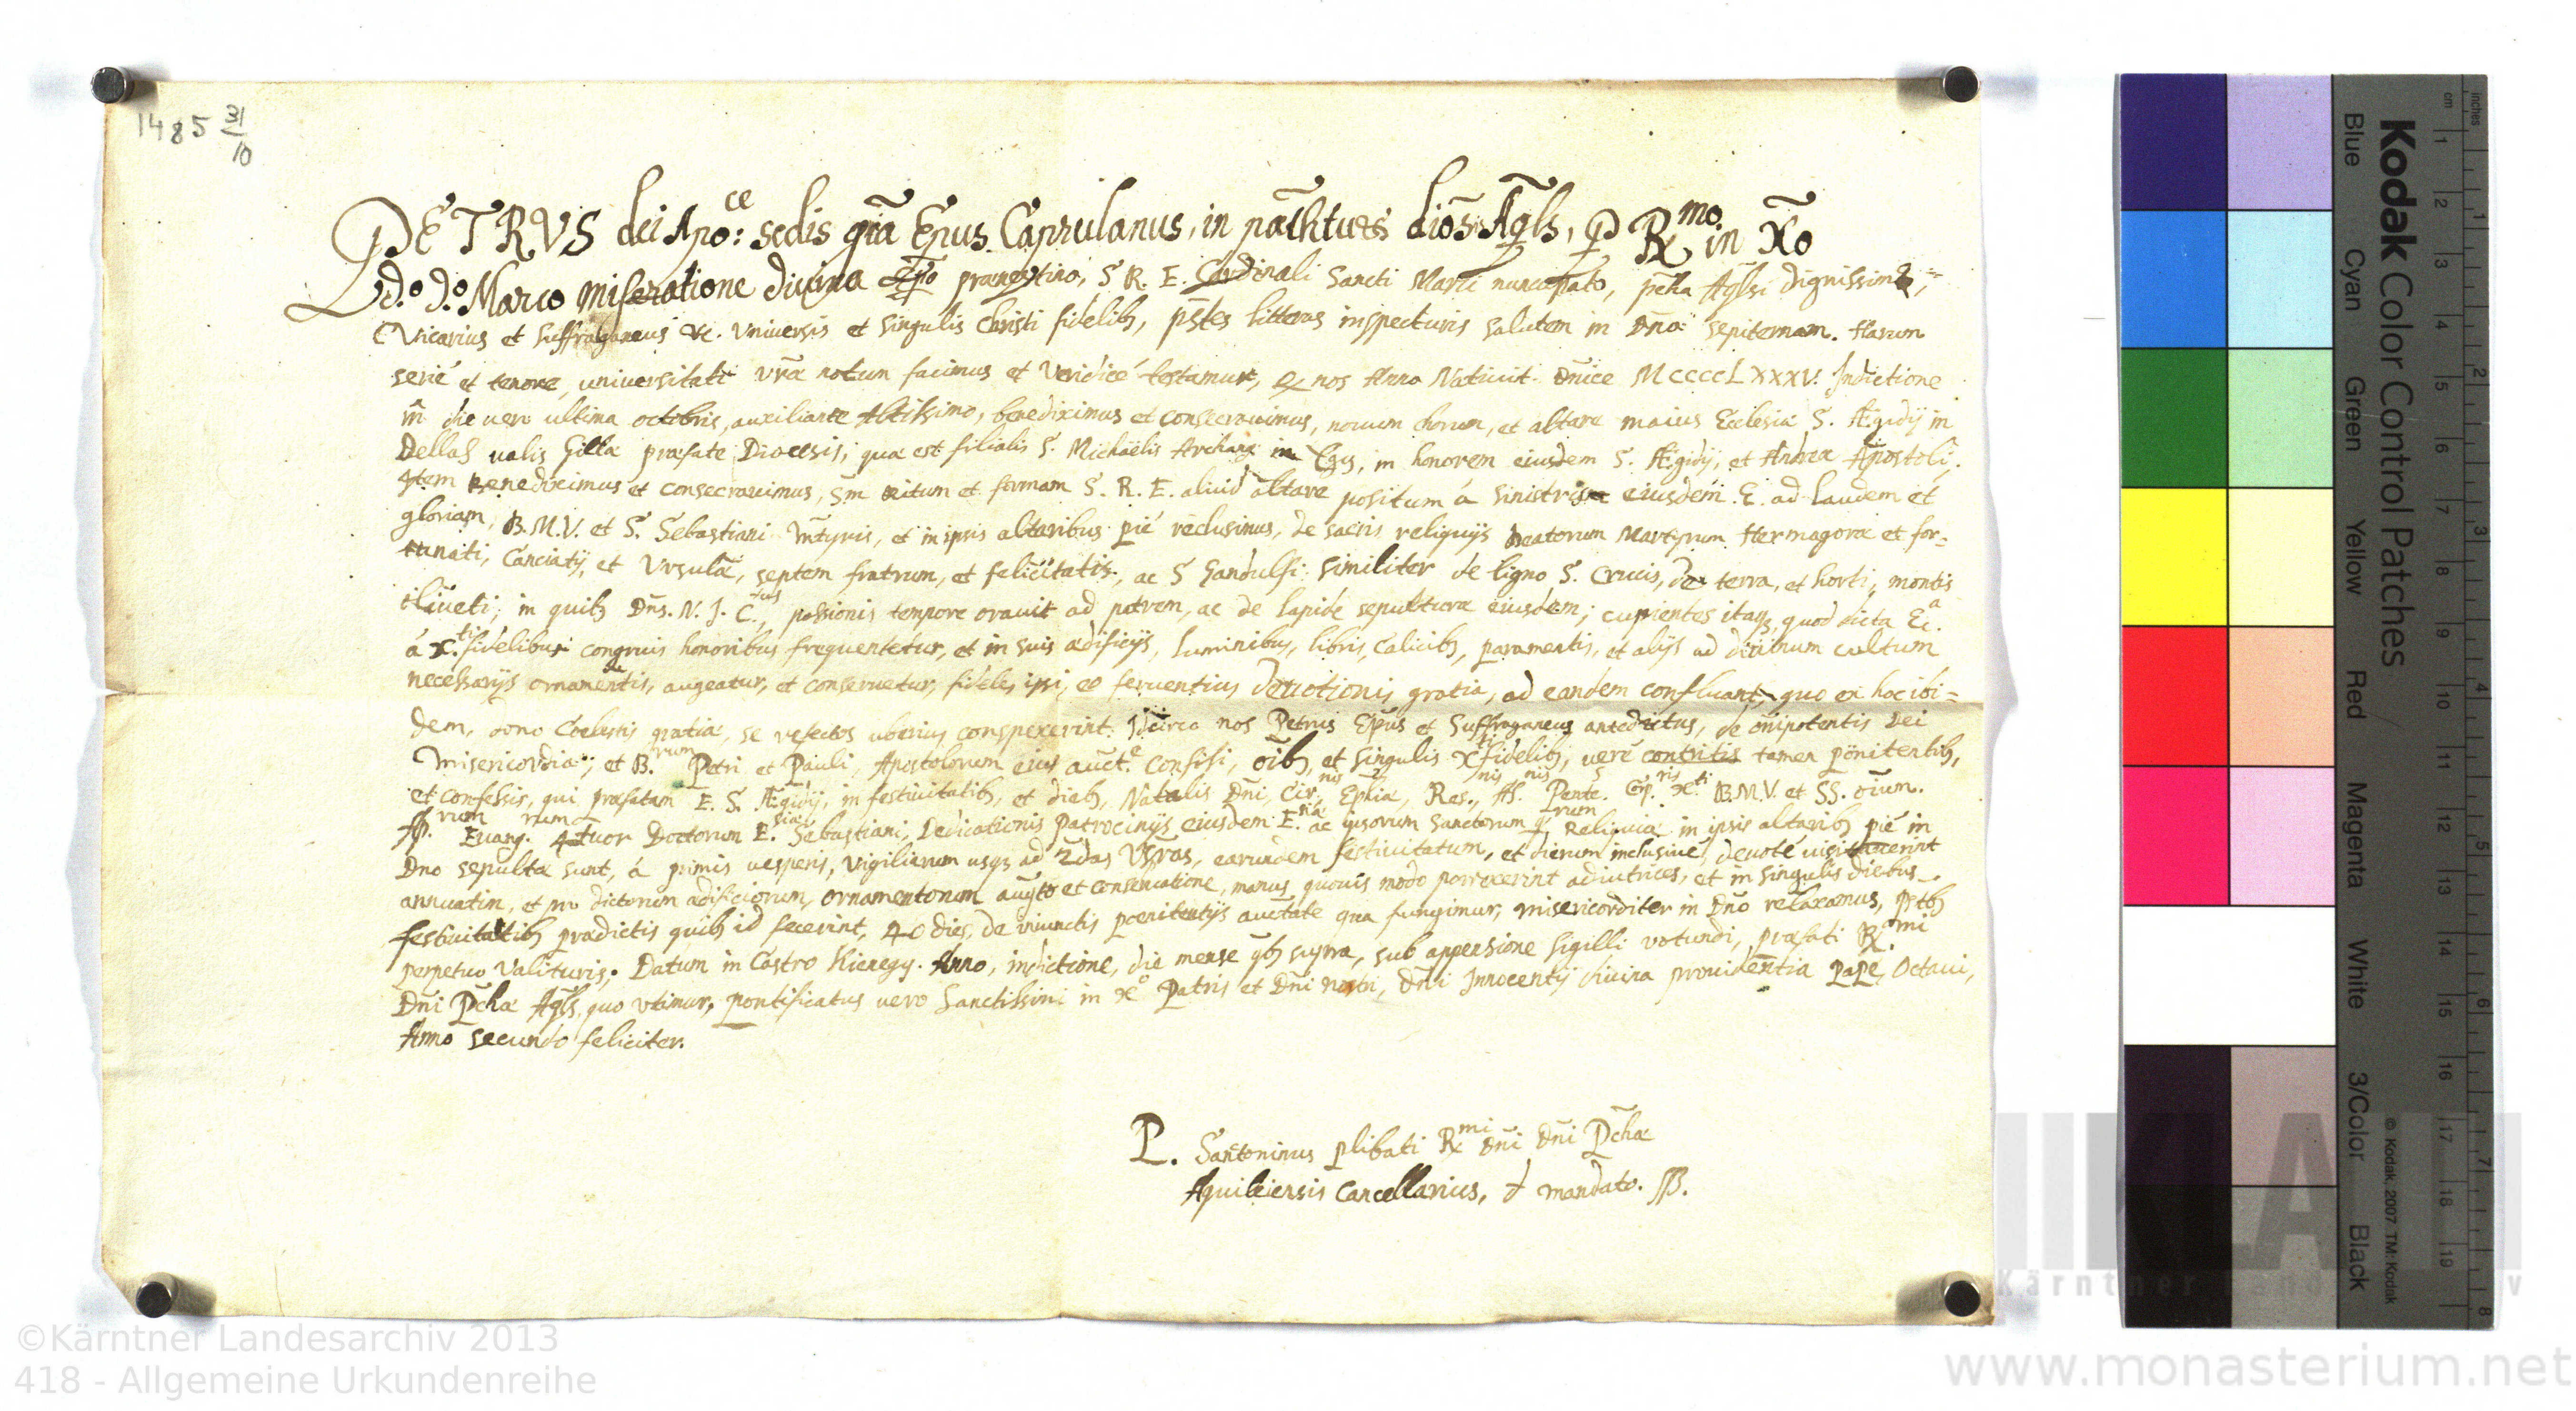 1485 31/10
PETRVS dei Apo:ce sedis grā Epus Caprulanus, in pāchtu dioē Aqls, P Rmo in Xo
D.o D.o Marco miseratione divina Epo prænestino, S. R. E. Cardinali Sancti Marci nuncupato, pcha Aqlsi dignissim
Vicarius et Suffraganeus &c. Universis et singulis Christi fidelib, pñtes litteras inspecturis salutem in Dño sepiternam. Harum
serie et tenore, universitati vræ notum facimus et veridicé testamur, nos Anno Nativit. Dnice MCCCCLXXXV. Indictione
die vero ultima octobris, auxiliante Altissimo, benediximus et consecravimus, novum chorum, et altare maius Ecclesiæ S. Ægidij in
Dellach valis Gillæ præfate Diocesis, quæ est filialis S. Michaëlis Archang in Egg, in honorem eiusdem S. Ægidij, et Andreæ Apostoli.
Item benediximus et consecravimus, Sm ritum et formam S. R. E. aliud altare positum á sinistris eiusdem E. ad laudem et
gloriam, B.M.V. et S. Sebastiani Mtyris, et in ipsis altaribus pié reclusimus, de sacris reliquijs beatorum Martyrum Hermagoræ et for-
tunati, Canciatij, et Ursulæ, septem fratrum, et felicitatis, ac S Gandulfi: Similiter de ligno S. Crucis, de terra, et horti, montis
oliveti; in quib Dns. N. J. C.tus, passionis tempore oravit ad patrem, ac de lapide sepulturæ eiusdem; cupientes itaq, quod dicta Ec.a
á X.ti fidelibus congruis honoribus frequentetur, et in suis ædificijs, luminibus, libris, calicib, paramentis, et alijs ad divinum cultum
necessarijs ornamentis, augeatur, et conservetur, fideles ipsi, eo ferventius devotionis gratia, ad eandem confluant, quo ex hoc ibi=
dem, dono Coelestis gratiæ, se refectos uberius conspexerint. Idcirco nos Petrus Epus et Suffraganeus antedictus, de omipotentis Dei
misericordia, et B.rum Petri et Pauli, Apostolorum eius auct.e confisi, oib, et singulis Xti fidelib, veré contritis tamen pönitentib,
et confessis, qui præfatam E. S. Ægidij, in festivitatib, et dieb, Natalis Dni, Cir.nis Ephiæ, Res.nis, As.nis Pente.s Cp.ris Xti B.M.V. et SS. oium.
Ap.rum Evang.rum 4tuor Doctorum E.siæ Sebastiani, Dedicationis Patrocinijs eiusdem E.siæ ac ipsorum Sanctorum q.rum Reliquiæ in ipsis altarib pié in
Dno sepultæ sunt, á primis vesperis, vigiliarum usq ad 2das Vspras, earundem festivitatum, et dierum inclusivé, devoté visitaverint
annuatim, et pro dictorum ædificiorum, ornamentorum augto et conservatione, manus quovis modo porrexerint adiutrices, et in singulis diebus
festivitatib prædictis quib id fecerint, 40 dies, de iniunctis poenitentijs auctate qua fungimur, misericorditer in Dno relaxamus, pntb
perpetuo valituris. Datum in Castro Kienegg. Anno, indictione, die mense qb supra, sub appensione Sigilli rotundi, præfati R.mi
Dni Pchæ Aqls, quo utimur, pontificatus vero Sanctissimi in Xo Patris et Dni nostri, Dni Innocentij divina providentia Pape, Octavi,
Anno secundo feliciter.
P. Santoninus plibati Rmi Dni Dni Pchæ
Aquileiensis Cancellarius, mandato. SS.
Kodak Color Control Patches
Blue Cyan Green Yellow Red Magenta White 3/Color Black
© Kodak, 2007 TM: Kodak
inches 1 2 3 4 5 6 7 8
cm 1 2 3 4 5 6 7 8 9 10 11 12 13 14 15 16 17 18 19
©Kärntner Landesarchiv 2013
418 - Allgemeine Urkundenreihe
www.monasterium.net